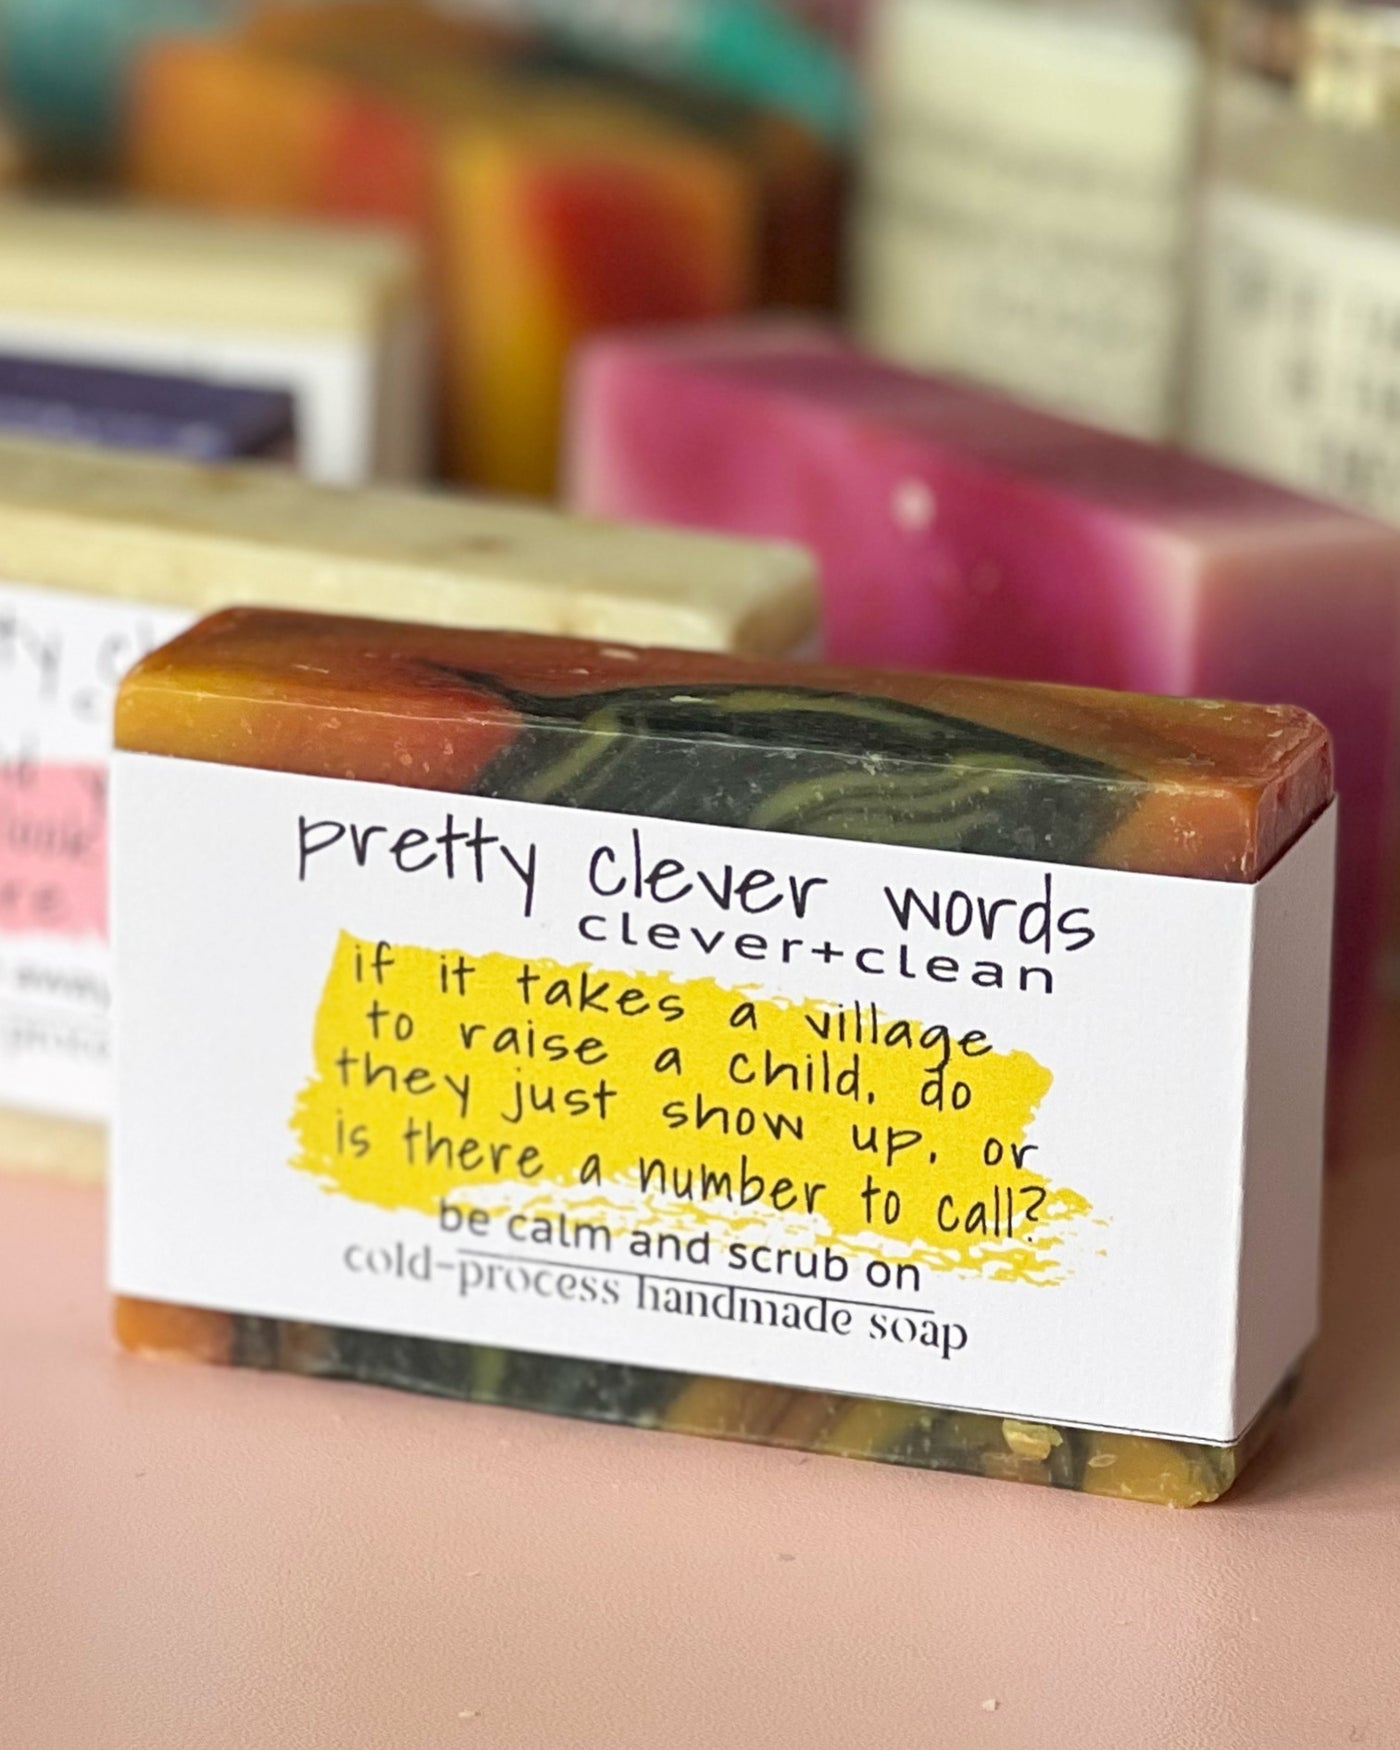 pretty clever words
clever+clean
if it takes a village
to raise a child, do
they just show up, or
is there a number to call?
be calm and scrub on
cold-process handmade soap